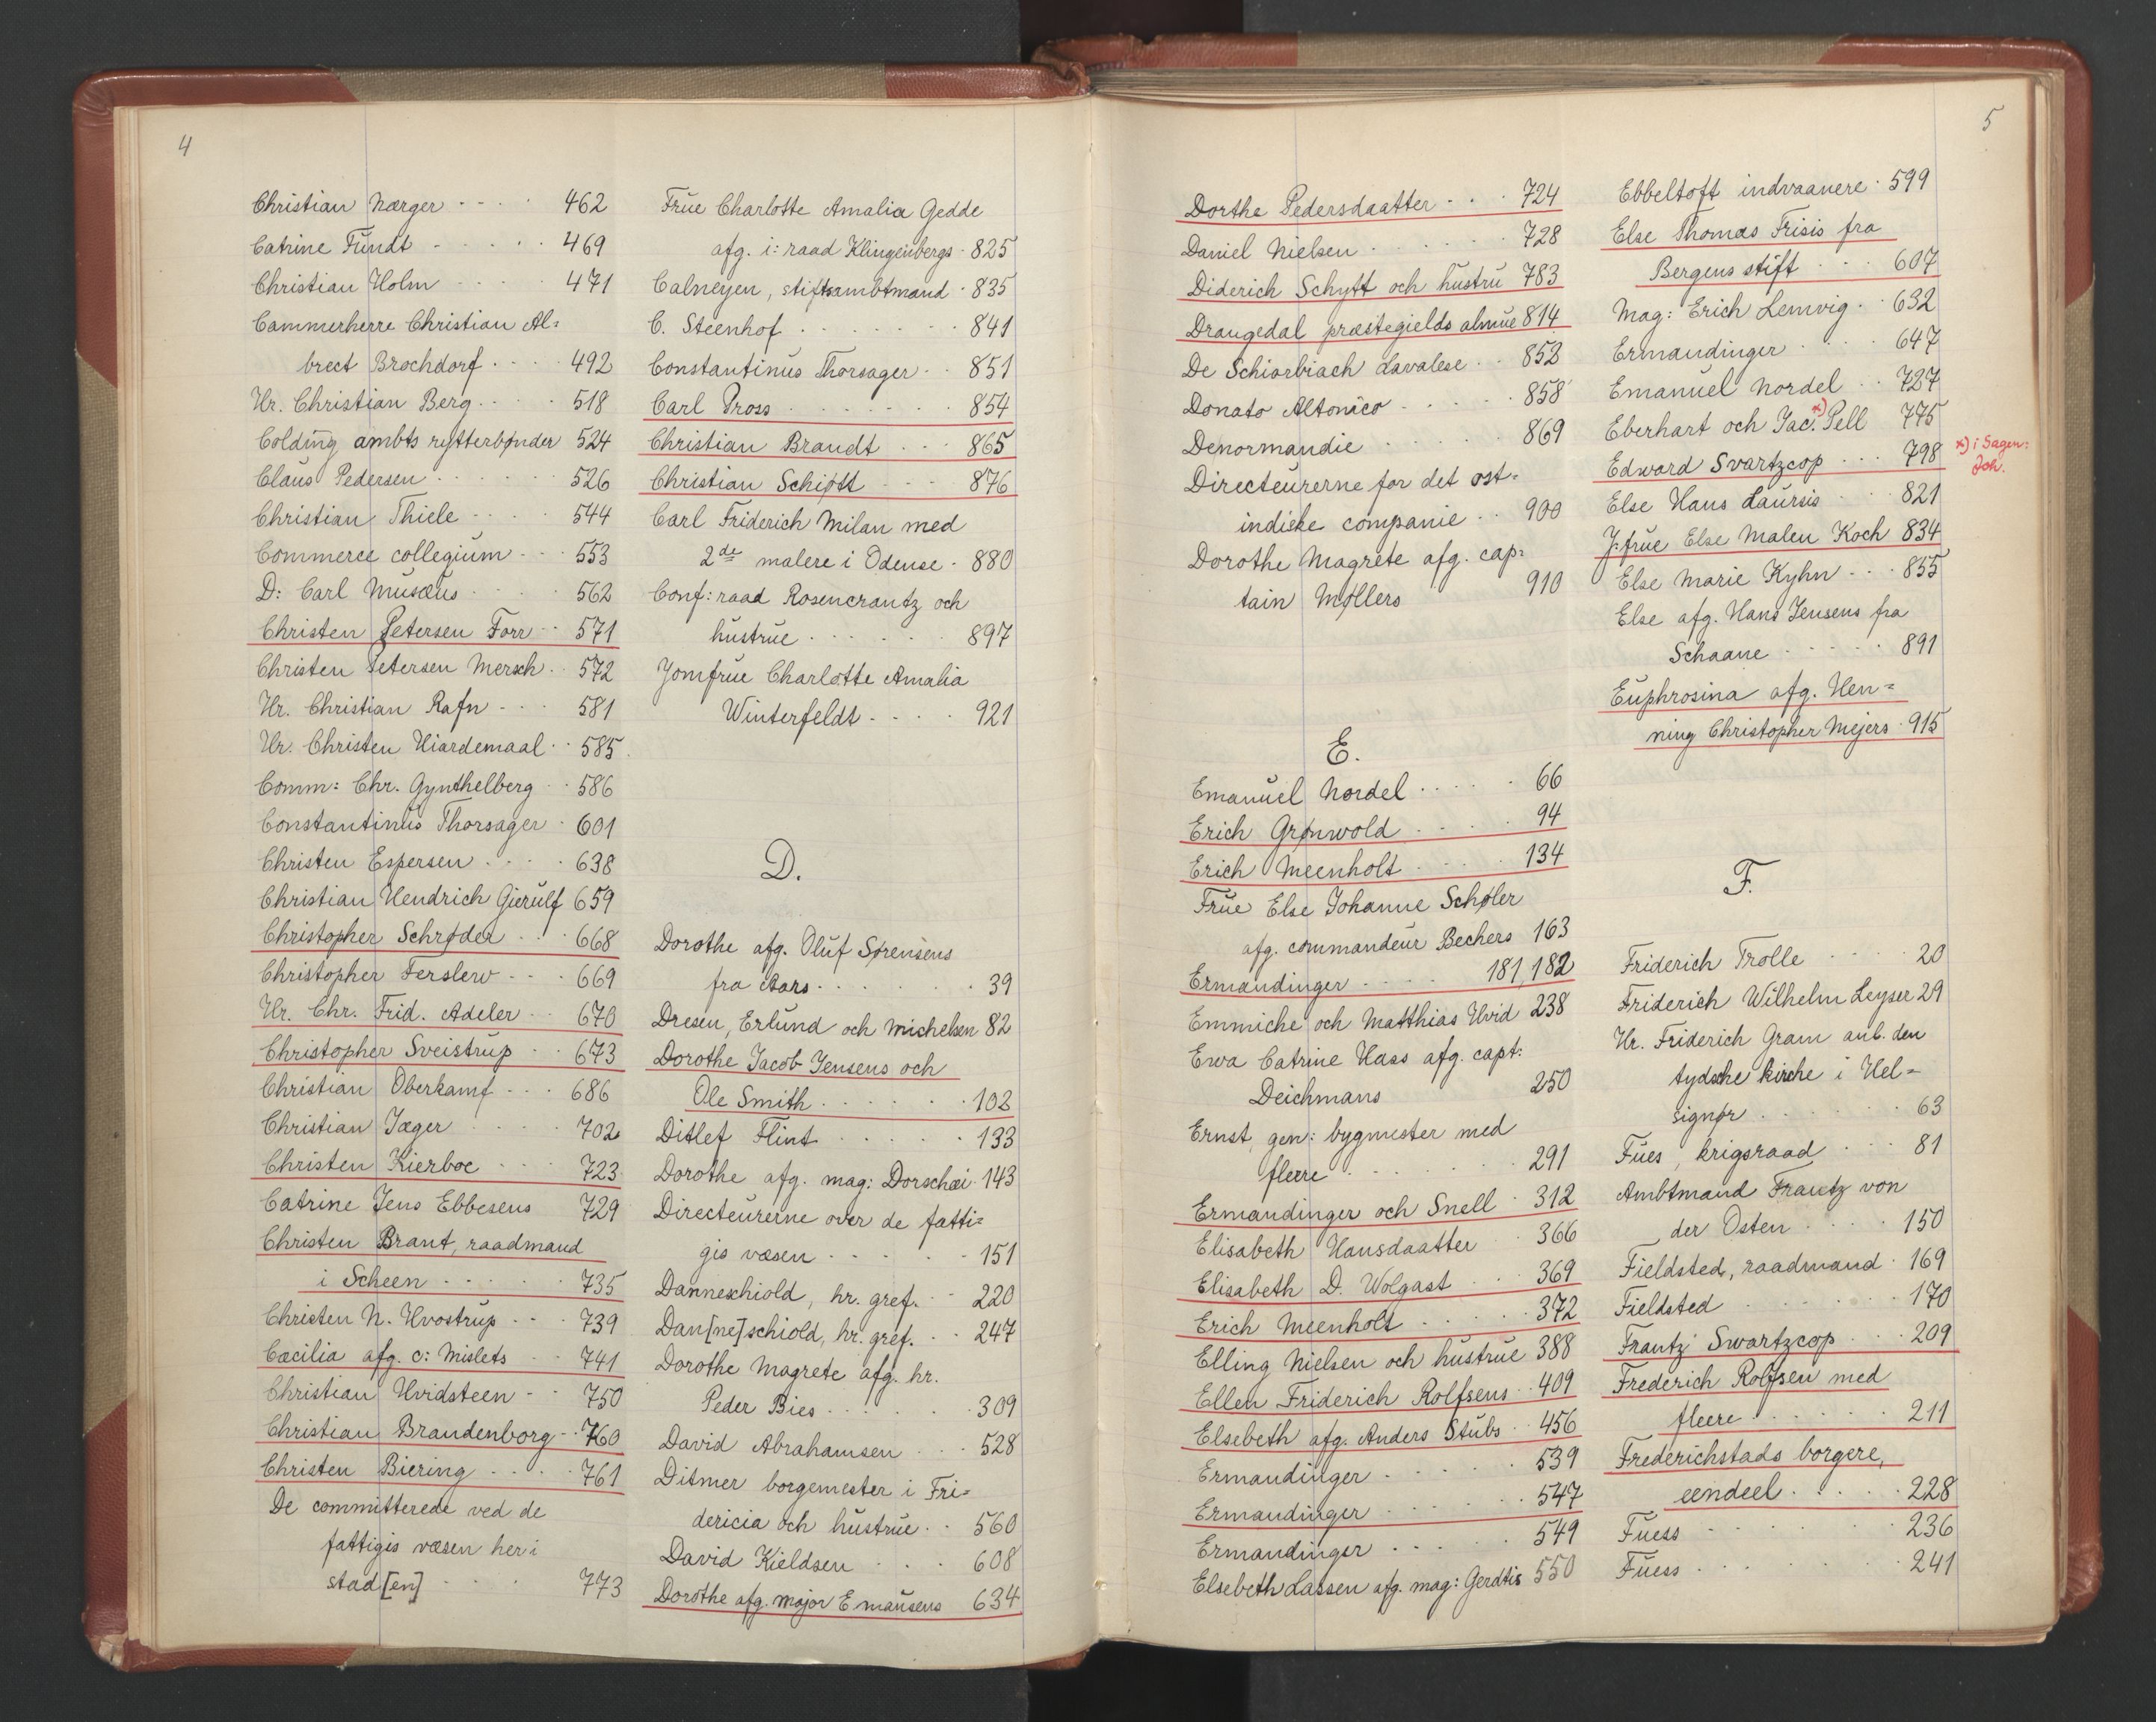 4
Christian Nærger - - - - 462
Catrine Fundt - - - - - 469
Christian Holm - - - - 471
Cammerherre Christian Al=
brect Brochdorf - - - - 492
Hr. Christian Berg - - - - 518
Colding ambts rytterbønder 524
Claus Pedersen - - - - - - 526
Christian Thiele - - - - 544
Commerce collegium - - - 553
D: Carl Musæus - - - - 562
Christen Petersen Forr - - 571
Christen Petersen Mersch - - 572
Hr. Christian Rafn - - - 581
Hr. Christen Hiardemaal - - 585
Comm: Chr. Gynthelberg - - 586
Constantinus Thorsager - 601
Christen Espersen - - - - 638
Christian Hendrich Gierulf 659
Christopher Schrøder - - - 668
Christopher Ferslew - - - 669
Hr. Chr. Frid. Adeler - - 670
Christopher Sveistrup - - 673
Christian Oberkamf - - - 686
Christian Jæger - - - - 702
Christen Kierboe - - - 723
Catrine Jens Ebbesens 729
Christen Brant, raadmand
i Scheen - - - - - 735
Christen N. Hvostrup - - - 739
Cæcilia afg. c: Mislets - - 741
Christian Hvidsteen - - 750
Christian Brandenborg - - 760
Christen Biering - - - - 761
De committerede ved de
fattigis væsen her i
stad[en] - - - 773
Frue Charlotte Amalia Gedde
afg. i: raad Klingenbergs - 825
Calneyen, stiftsambtmand - 835
C. Steenhof - - - - - - - 841
Constantinus Thorsager - - 851
Carl Pross - - - - - - - 854
Christian Brandt - - - 865
Christian Schiøtt - - - 876
Carl Friderich Milan med
2de malere i Odense - 880
Conf: raad Rosencrantz och
hustrue - - - - - - 897
Jomfrue Charlotte Amalia
Winterfeldt - - - - 921
D.
Dorothe afg. Oluf Sørensens
fra Aars - - - - - - - 39
Dresen, Erlund och Michelsen 82
Dorothe Jacob Jensens och
Ole Smith - - - - - - 102
Ditlef Flint - - - - - 133
Dorothe afg. mag: Dorschæi - 143
Directeurerne over de fatti=
gis væsen - - - - - 151
Danneschiold, hr. gref. - - 220
Dan[ne]schiold, hr. gref. - - 247
Dorothe Magrete afg. hr.
Peder Bies - - - - - - 309
David Abrahamsen - - - 528
Ditmer borgemester i Fri=
dericia och hustrue - - 560
David Kieldsen - - - 608
Dorothe afg. major Emausens 634
5
Dorthe Pedersdaatter - - - 724
Daniel Nielsen - - - - - - 728
Diderich Schytt och hustru 783
Draugedal præstegields almue 814
De Schiarbiach Lavalese - - 852
Donato Altonico - - - - - 858
Denormandie - - - - - 869
Directeurerne for det ost=
indiske companie - - 900
Dorothe Magrete afg. cap=
tain Møllers 910
E.
Emanuel Nordel - - - - - 66
Erich Grønwold - - - - 94
Erich Meenholt - - - - 134
Frue Else Johanne Schøler
afg. commandeur Bechers 163
Ermandinger - - - - 181, 182
Emmiche och Matthias Hvid 238
Ewa Catrine Hass afg. capt:
Deichmans 250
Ernst, gen: bygmester med
fleere - - - - - - - 291
Ermandinger och Snell - 312
Elisabeth Hansdaatter - 366
Elisabeth D. Wolgast - - - 369
Erich Meenholt - - - - - 372
Elling Nielsen och hustrue 388
Ellen Friderich Rolfsens - - 409
Elsebeth afg. Anders Stubs - - 456
Ermandinger - - - - - 539
Ermandinger - - - - - - 547
Ermandinger - - - - - 549
Elsebeth Lassen afg. mag: Gerdtis 550
Ebbeltoft indvaanere - 599
Else Thomas Frisis fra
Bergens stift - - - 607
Mag: Erich Lemvig - - 632
Ermandinger - - - - 647
Emanuel Nordel - - 727
Eberhart och Jac. x) Pell 775
Edward Svartzcop - - - 798
x) i Sagen:
Joh.
Else Hans Laursis - - 821
Jfrue Else Malen Koch 834
Else Marie Kyhn - - - 855
Else afg. Hans Jensens fra
Schaane - - - - - 891
Euphrosina afg. Hen=
ning Christopher Mejers - 915
F.
Friderich Trolle - - - - 20
Friderich Wilhelm Leyser 29
Hr. Friderich Gram anb. den
tydsche kirche i Hel=
signør - - - - - - 63
Fues, krigsraad - - - 81
Ambtmand Frantz von
der Osten - - - - 150
Fieldsted, raadmand - 169
Fieldsted - - - - - - 170
Frantz Swartzcop - - - 209
Frederich Rolfsen med
fleere - - - - - - 211
Frederichstads borgere,
eendeel - - - - - 228
Fuess - - - - - - 236
Fuess - - - - - - - 241